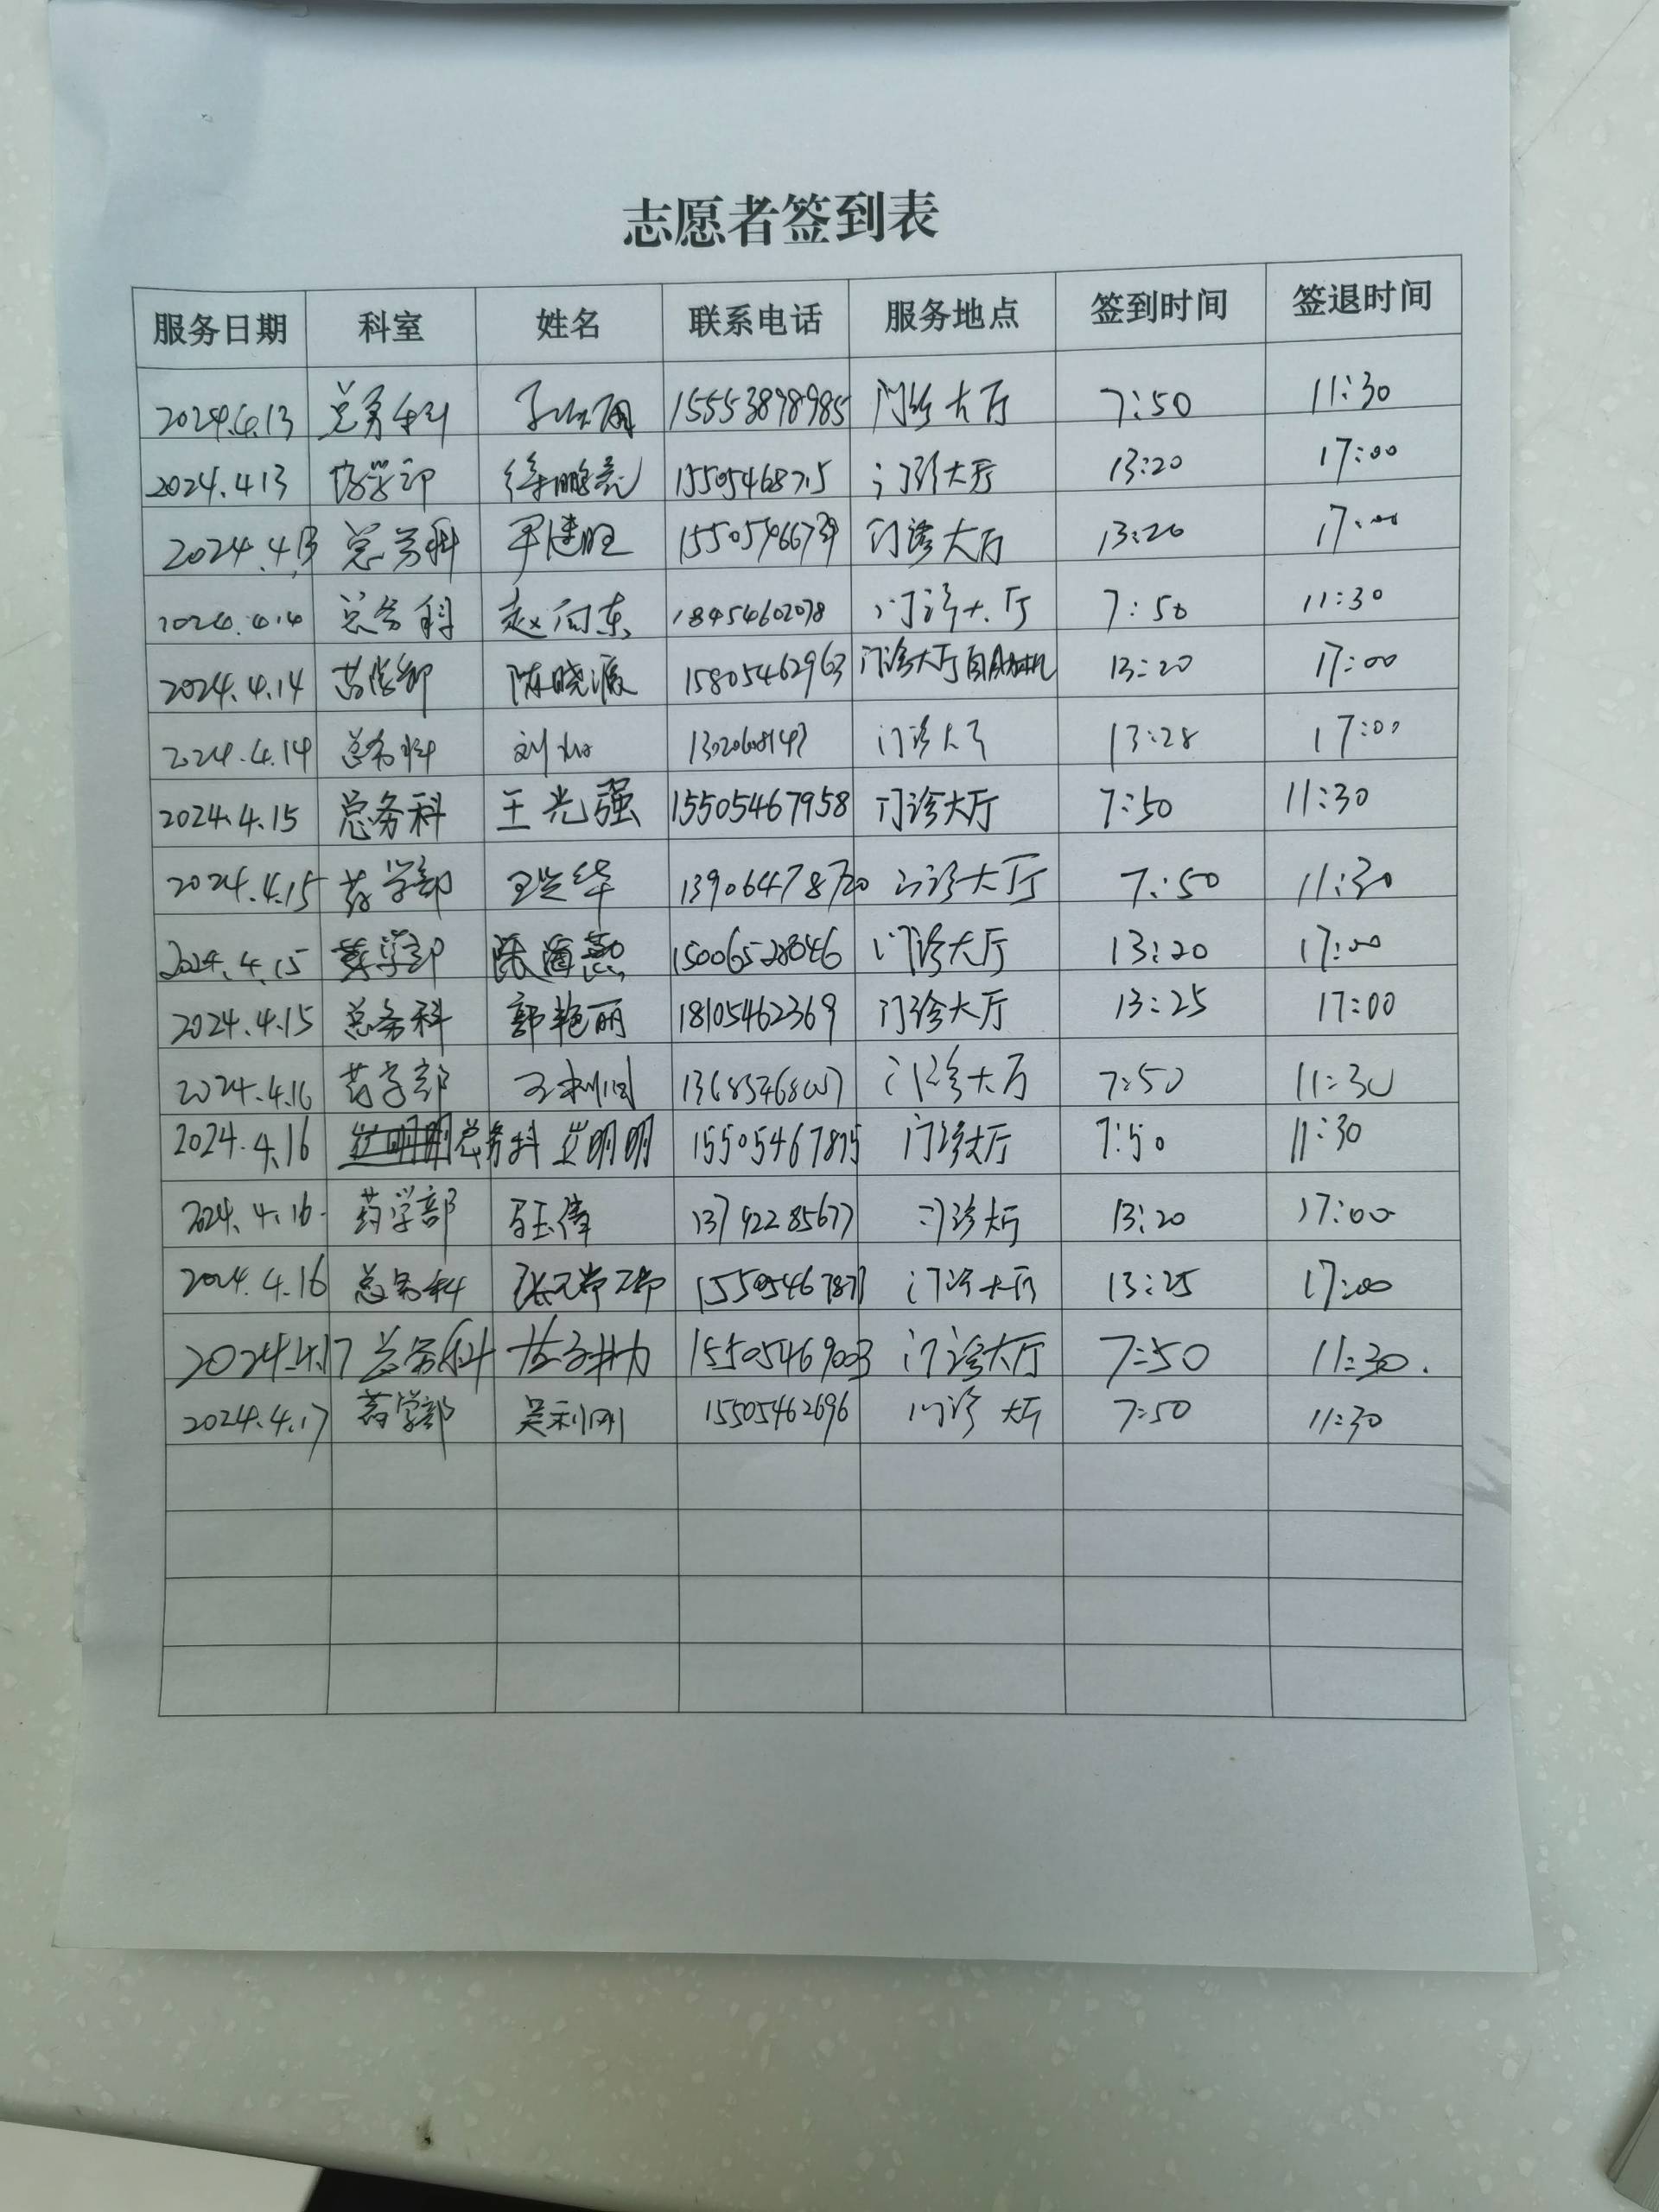 志愿者签到表
服务日期 科室 姓名 联系电话 服务地点 签到时间 签退时间
2024.4.13 总务科 15553898985 门诊大厅 7:50 11:30
2024.4.13 药学部 徐鹏亮 门诊大厅 13:20 17:00
2024.4.13 总务科 门诊大厅 13:20 17:00
2024.4.14 总务科 赵向东 18454602078 门诊大厅 7:50 11:30
2024.4.14 药学部 陈晓 15805462963 门诊大厅 13:20 17:00
2024.4.14 总务科 门诊大厅 13:28 17:00
2024.4.15 总务科 王光强 15505467958 门诊大厅 7:50 11:30
2024.4.15 药学部 13906478720 门诊大厅 7:50 11:30
2024.4.15 药学部 15006528046 门诊大厅 13:20 17:00
2024.4.15 总务科 郭艳丽 18105462369 门诊大厅 13:25 17:00
2024.4.16 药学部 门诊大厅 7:50 11:30
2024.4.16 总务科 明明 15505467875 门诊大厅 7:50 11:30
2024.4.16 药学部 13792285677 门诊大厅 13:20 17:00
2024.4.16 总务科 15505467877 门诊大厅 13:25 17:00
2024.4.17 总务科 15505469003 门诊大厅 7:50 11:30.
2024.4.17 药学部 吴利刚 15505462696 门诊大厅 7:50 11:30